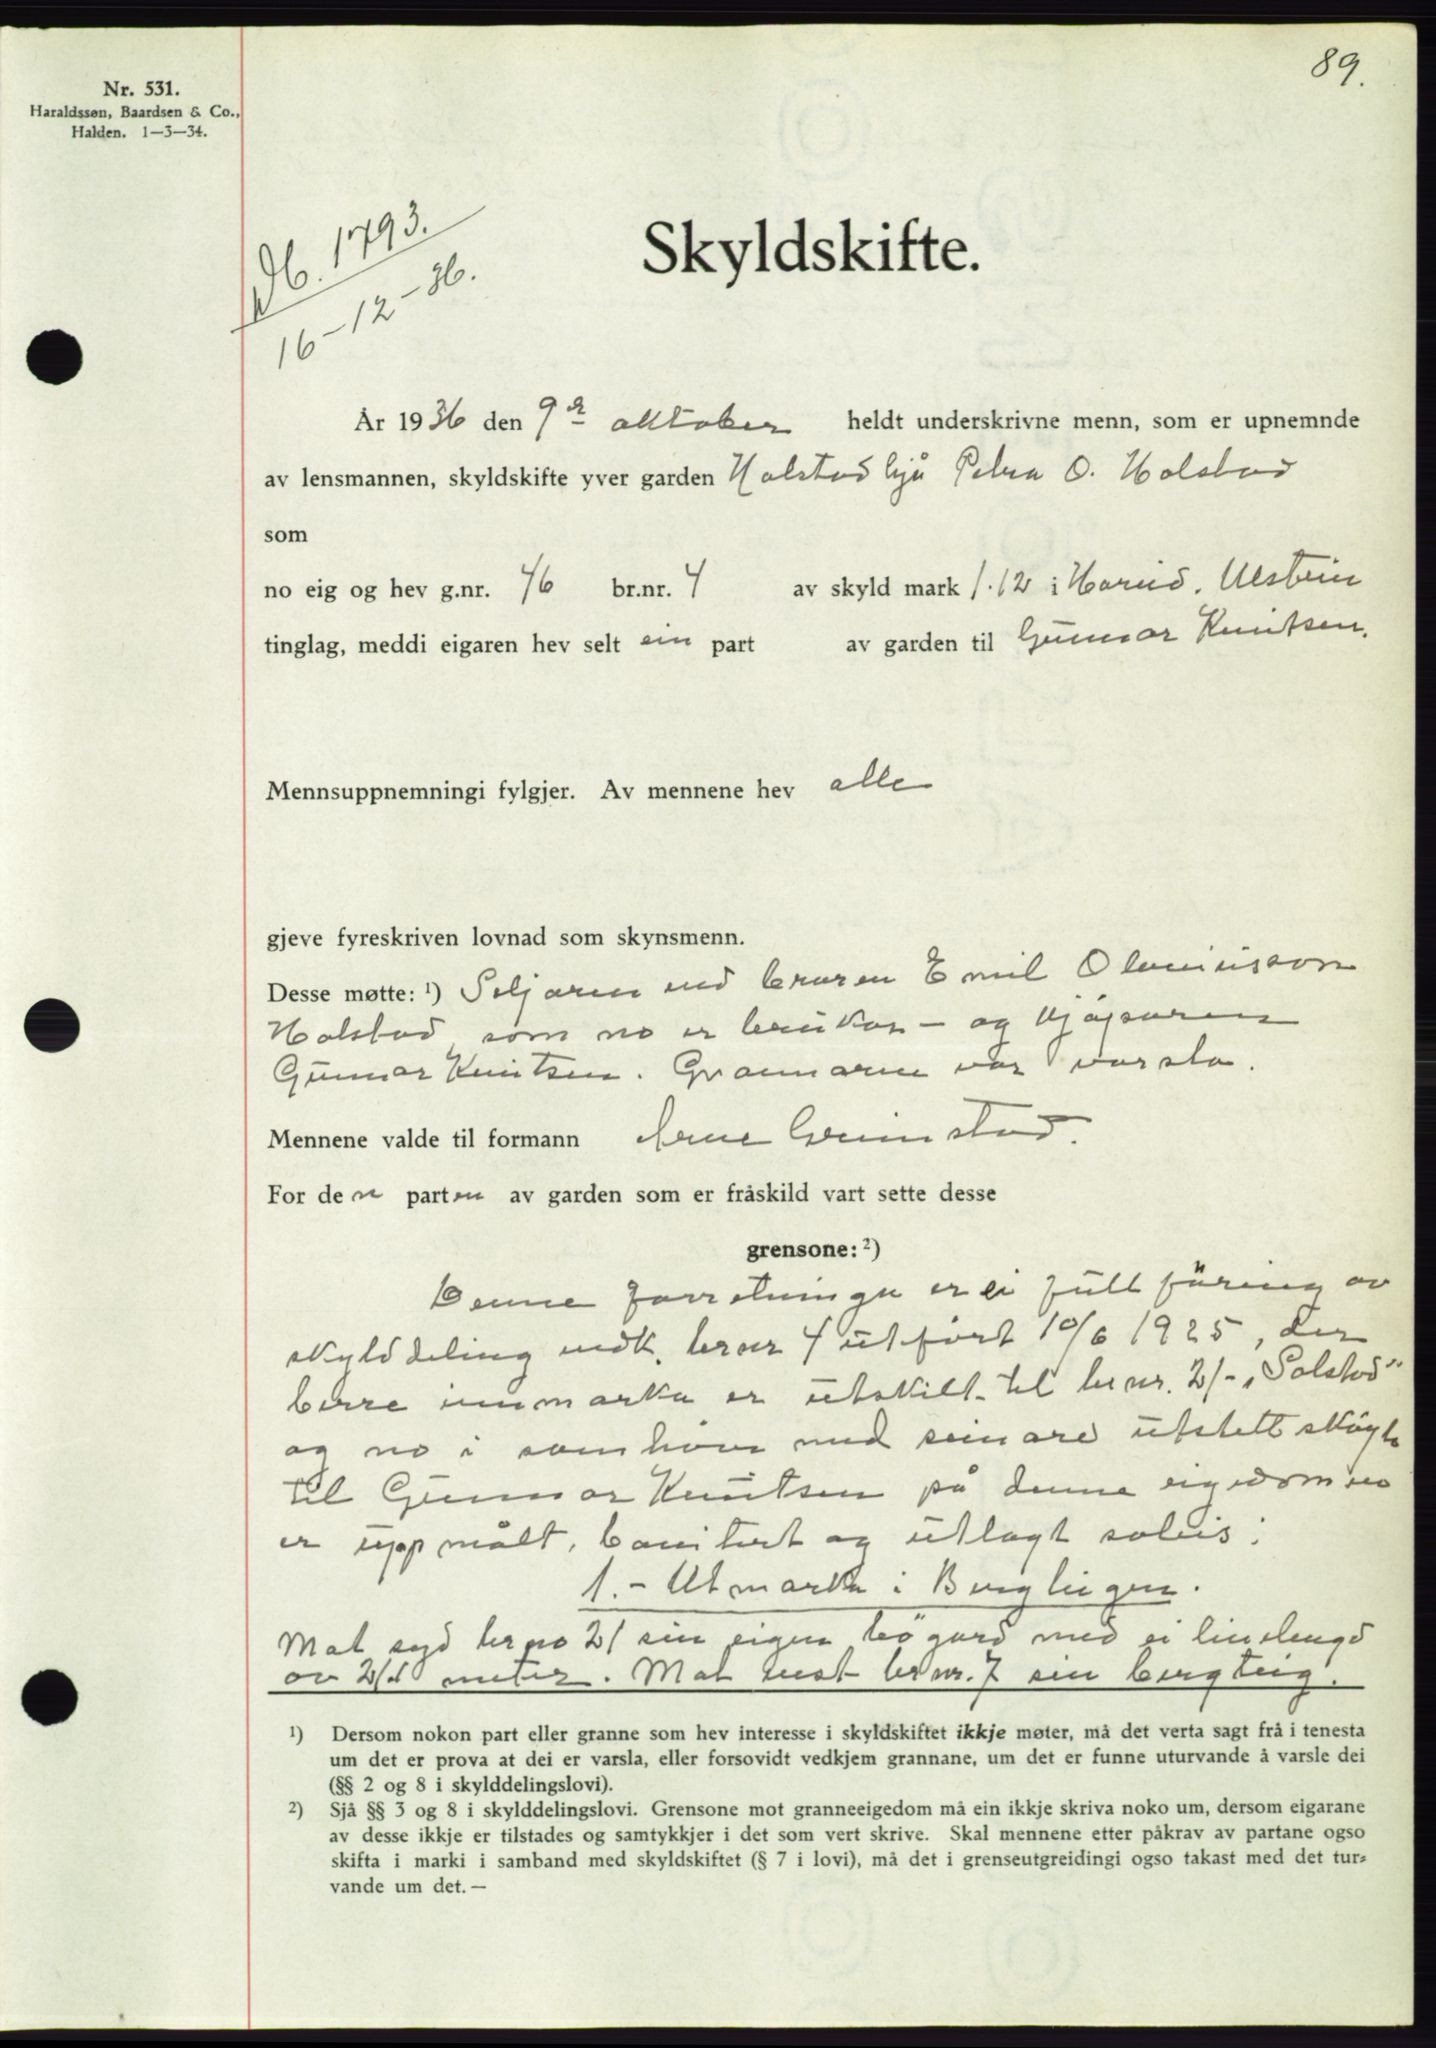 89.
Nr. 531.
Haraldssøn, Baardsen & Co.,
Halden. 1—3—34.
Db. 1793.
16-12-36.
Skyldskifte.
År 1936 den 9de oktober heldt underskrivne menn, som er upnemnde
av lensmannen, skyldskifte yver garden Holstad hjå Petra O. Holstad
som
no eig og hev g.nr. 46 br.nr. 4 av skyld mark 1.12 i Hareid. Ulstein
tinglag, meddi eigaren hev selt ein part av garden til Gunnar Knutsen.
Mennsuppnemningi fylgjer. Av mennene hev alle
gjeve fyreskriven lovnad som skynsmenn.
Desse møtte: ¹) Seljaren ved broren Emil Olavsson
Holstad som no er brukar - og kjøparen
Gunnar Knutsen. Grannarne var varsla.
Mennene valde til formann Arne Grimstad.
For den parten av garden som er fråskild vart sette desse
grensone: ²)
Denne forretninga er ei fullføring av
skylddeling vedk. br.nr 4 utført 10/6 1925, der
berre innmarka er utskilt til br.nr. 21 - „Solstad"
og no i samhøve med seinare utstelt skøyte
til Gunnar Knutsen på denne eigedomen
er uppmålt, bonitert og utlagt soleis:
1. - Utmarka i
Mot syd br no 21 sin eigen bøgard med ei linelengd
av meter. Mot vest br.nr. 7 sin bergteig.
¹) Dersom nokon part eller granne som hev interesse i skyldskiftet ikkje møter, må det verta sagt frå i tenesta
um det er prova at dei er varsla, eller forsovidt vedkjem grannane, um det er funne uturvande å varsle dei
(§§ 2 og 8 i skylddelingslovi).
²) Sjå §§ 3 og 8 i skylddelingslovi. Grensone mot granneeigedom må ein ikkje skriva noko um, dersom eigarane
av desse ikkje er tilstades og samtykkjer i det som vert skrive. Skal mennene etter påkrav av partane ogso
skifta i marki i samband med skyldskiftet (§ 7 i lovi), må det i grenseutgreidingi ogso takast med det tur-
vande um det. —